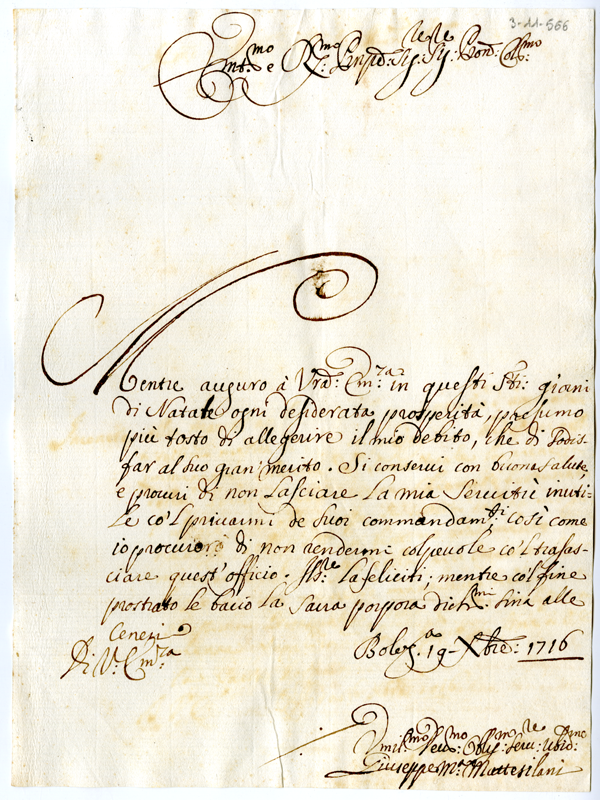 3-11-566
Em.mo e R.mo Prnpe: Sig.re Sig.re Pron: Col.mo
Mentre auguro à Vra: Em.za in questi Sti: giorni
di Natale ogni desiderata prosperità, presumo
più tosto di allegerire il mio debito, che di sodis-
far al suo gran merito. Si conservi con buona salute,
e procuri di non lasciare la mia Servitù inuti-
le co'l privarmi de suoi commandam.ti così come
io procurerò di non rendermi colpevole co'l trafas-
ciare quest'officio. la feliciti; mentre co'l fine
prostrato le bacio la Sacra porpora sina alle
Ceneri
Di V: Em.za
Bolog.a 19 Xbre: 1716
Giuseppe M.a Mattesilani